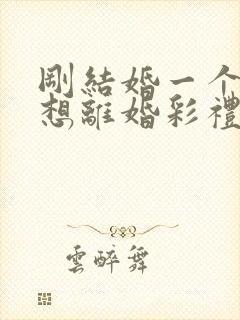 剛結婚一个
想離婚彩禮
雲醉舞